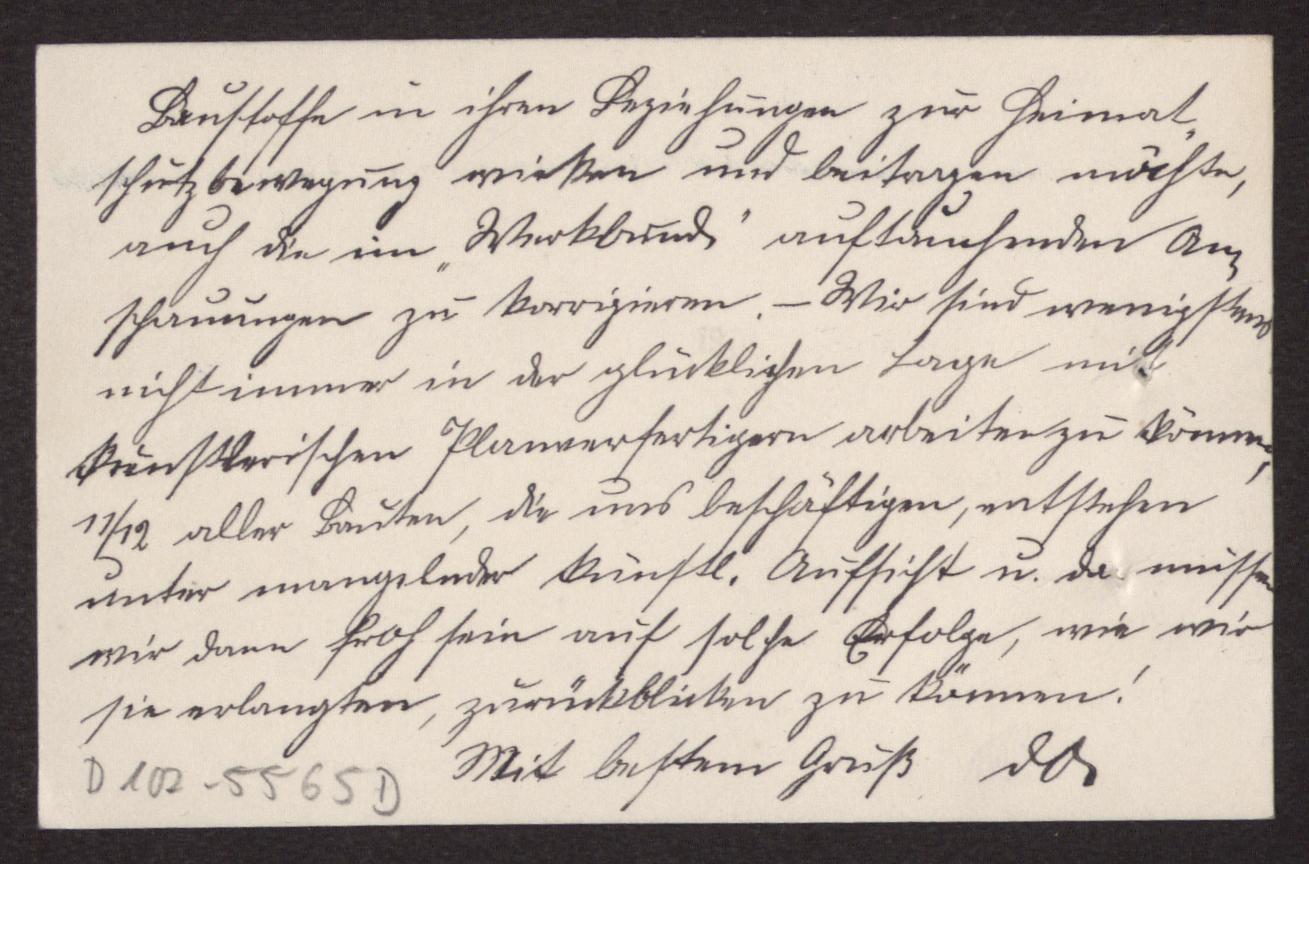 Baustoffe in ihren Beziehungen zur Heimat-
schutzbewegung wirken und beitragen möchte,
auch die im „Werkbund" auftauchenden An-
schauungen zu korrigieren. – Wir sind wenigstens
nicht immer in der glücklichen Lage mit
künstlerischen Planverfertigern arbeiten zu können,
11/12 aller Bauten, die uns beschäftigen, entstehen
unter mangelnder künstl. Aufsicht u. da müssen
wir dann froh sein auf solche Erfolge, wie wir
sie erlangten, zurückblicken zu können!
Mit bestem Gruß
D 102-5565 D